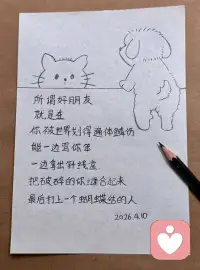 所谓好朋友
就是在
你被世界划得遍体鳞伤
能一边骂你笨
一边拿出针线盒
把破碎的你缝合起来
最后打上一个蝴蝶结的人
2026.4.10